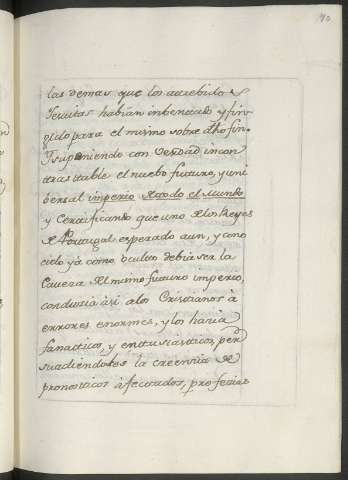 70
las demas, que los atrebidos
Jesuitas habian inbentado y fin
gido para el mismo sobre dho fin.
Y suponiendo con verdad incon
trastable el nuebo futuro, y uni
bersal imperio de todo el Mundo
y Certificando que uno de los Reyes
de Portugal esperado aun, y cono
cido yá como oculto debia ser la
Caveza del mismo futuro imperio,
conducia asi a los Cristianos à
errores enormes, y los hacia
fanaticos, y entusiasticos, per
suadiendoles la creencia de
pronosticos afectados, profecias